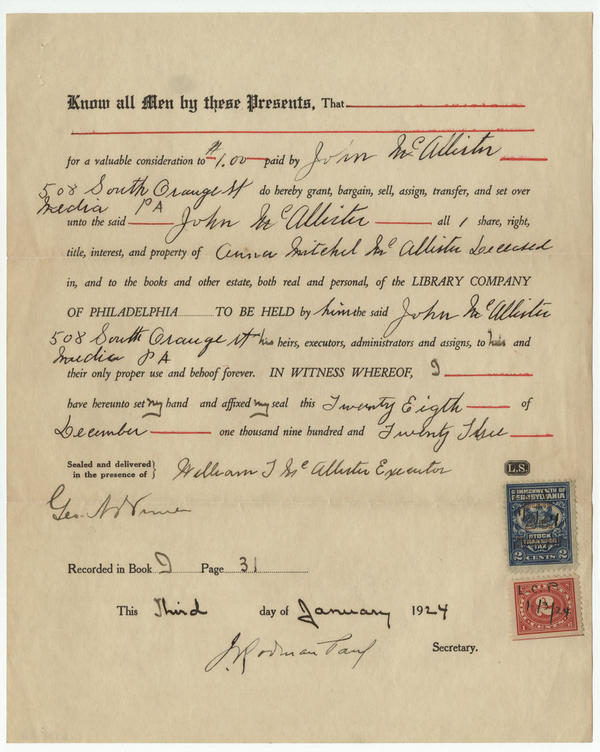 Know all Men by these Presents, That
for a valuable consideration to $1.00 paid by John McAllister
508 South Orange St do hereby grant, bargain, sell, assign, transfer, and set over
Media PA
unto the said John McAllister all 1 share, right,
title, interest, and property of Anna Mitchel McAllister Deceased
in, and to the books and other estate, both real and personal, of the LIBRARY COMPANY
OF PHILADELPHIA TO BE HELD by him the said John McAllister
508 South Orange St his heirs, executors, administrators and assigns, to his and
Media PA
their only proper use and behoof forever. IN WITNESS WHEREOF, I
have hereunto set my hand and affixed my seal this Twenty Eigth of
December one thousand nine hundred and Twenty Three
Sealed and delivered
in the presence of } William T McAllister Executor
L.S.
Geo.
COMMONWEALTH OF
PENNSYLVANIA
STOCK
TRANSFER
TAX
2 CENTS 2
Recorded in Book I Page 31
L.C.P.
This Third day of January 1924
J. Rodman Paul Secretary.